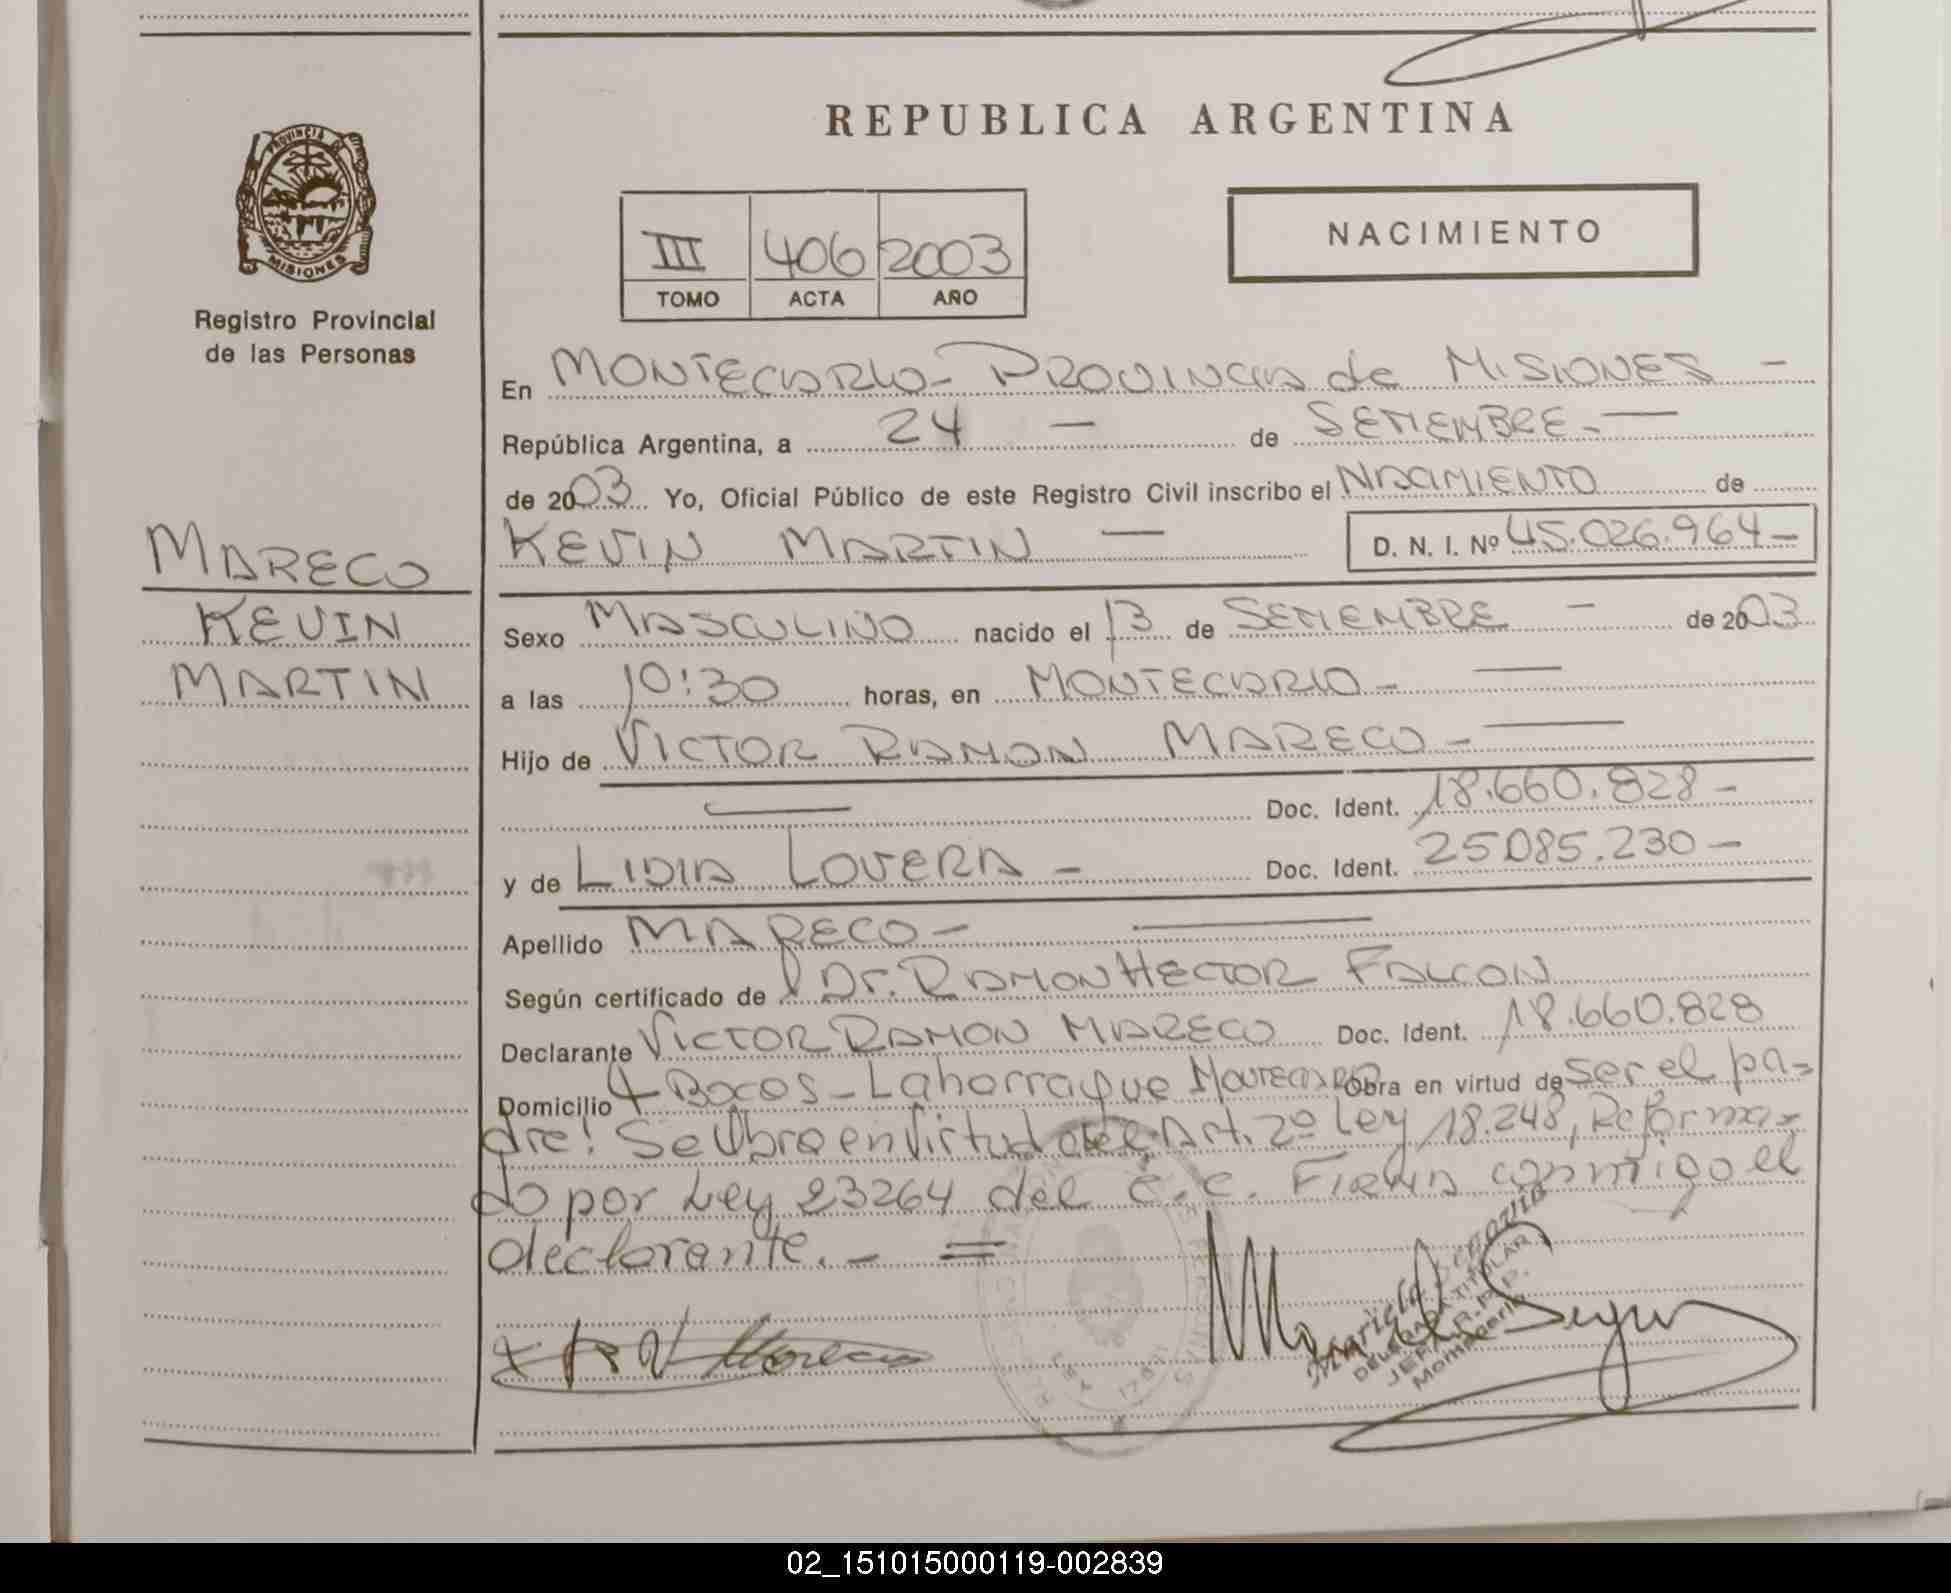 REPUBLICA ARGENTINA
PROVINCIA DE
MISIONES
Registro Provincial
de las Personas
III 406 2003
TOMO ACTA AÑO
NACIMIENTO
En MONTECARLO - PROVINCIA de MISIONES -
República Argentina, a 24 - de SETIEMBRE. -
de 2003 Yo, Oficial Público de este Registro Civil inscribo el NACIMIENTO de
MARECO
KEVIN
MARTIN
KEVIN MARTIN — D. N. I. Nº 45.026.964 -
Sexo MASCULINO nacido el 13 de SETIEMBRE - de 2003
a las 10:30 horas, en MONTECARLO - —
Hijo de VICTOR RAMON MARECO - —
— Doc. Ident. 18.660.828 -
y de LIDIA LOVERA - Doc. Ident. 25085.230 -
Apellido MARECO - —
Según certificado de Dr. RAMON HECTOR FALCON
Declarante VICTOR RAMON MARECO Doc. Ident. 18.660.828
Domicilio 4 Bocas - Laharrague MONTECARLO Obra en virtud de ser el pa=
dre! Se Obra en Virtud del Art. 2º Ley 18.248, Reforma=
do por Ley 23264 del C.C. FIRMA conmigo el
declarante. - =
DELEGADA TITULAR
JEFA R.P.P.
02_151015000119-002839